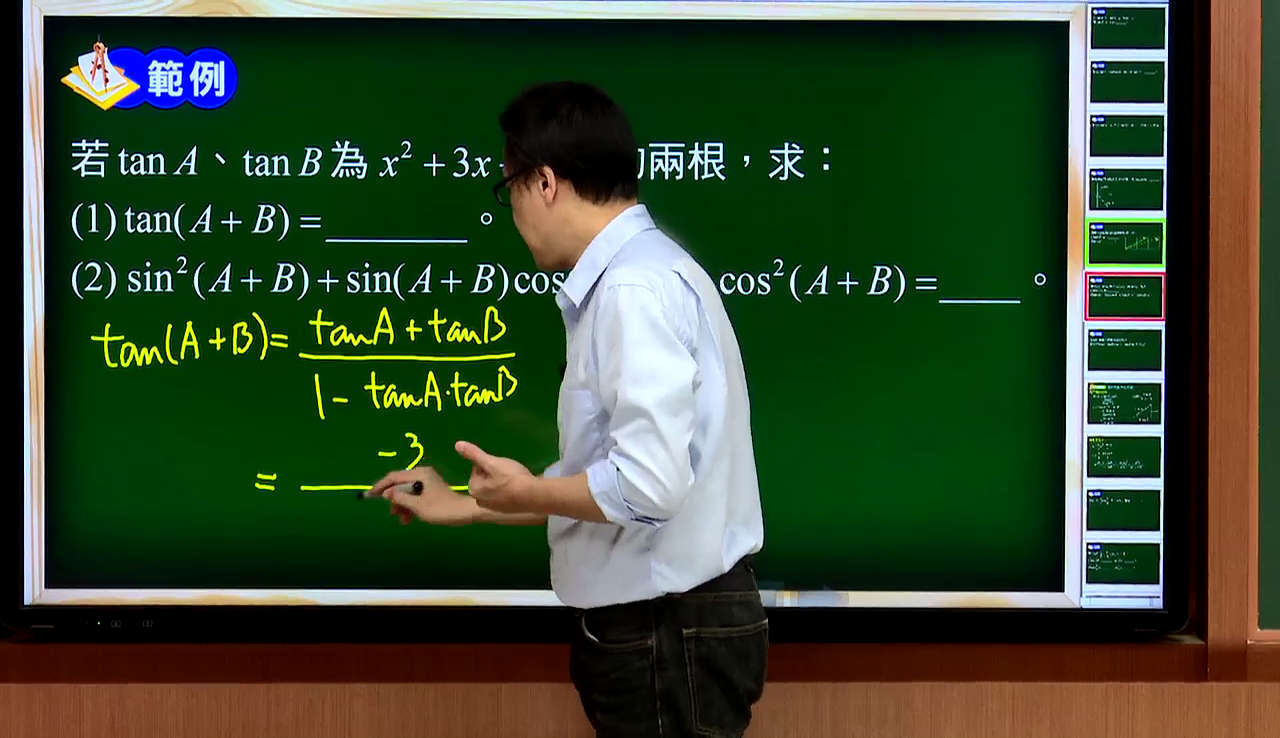 範例
若 tan A、tan B 為 x² + 3x 兩根，求：
(1) tan( A + B ) = ______ 。
(2) sin² ( A + B ) + sin( A + B ) cos cos² ( A + B ) = ____ 。
tan(A+B)= tanA + tanB
1 - tanA·tanB
= -3